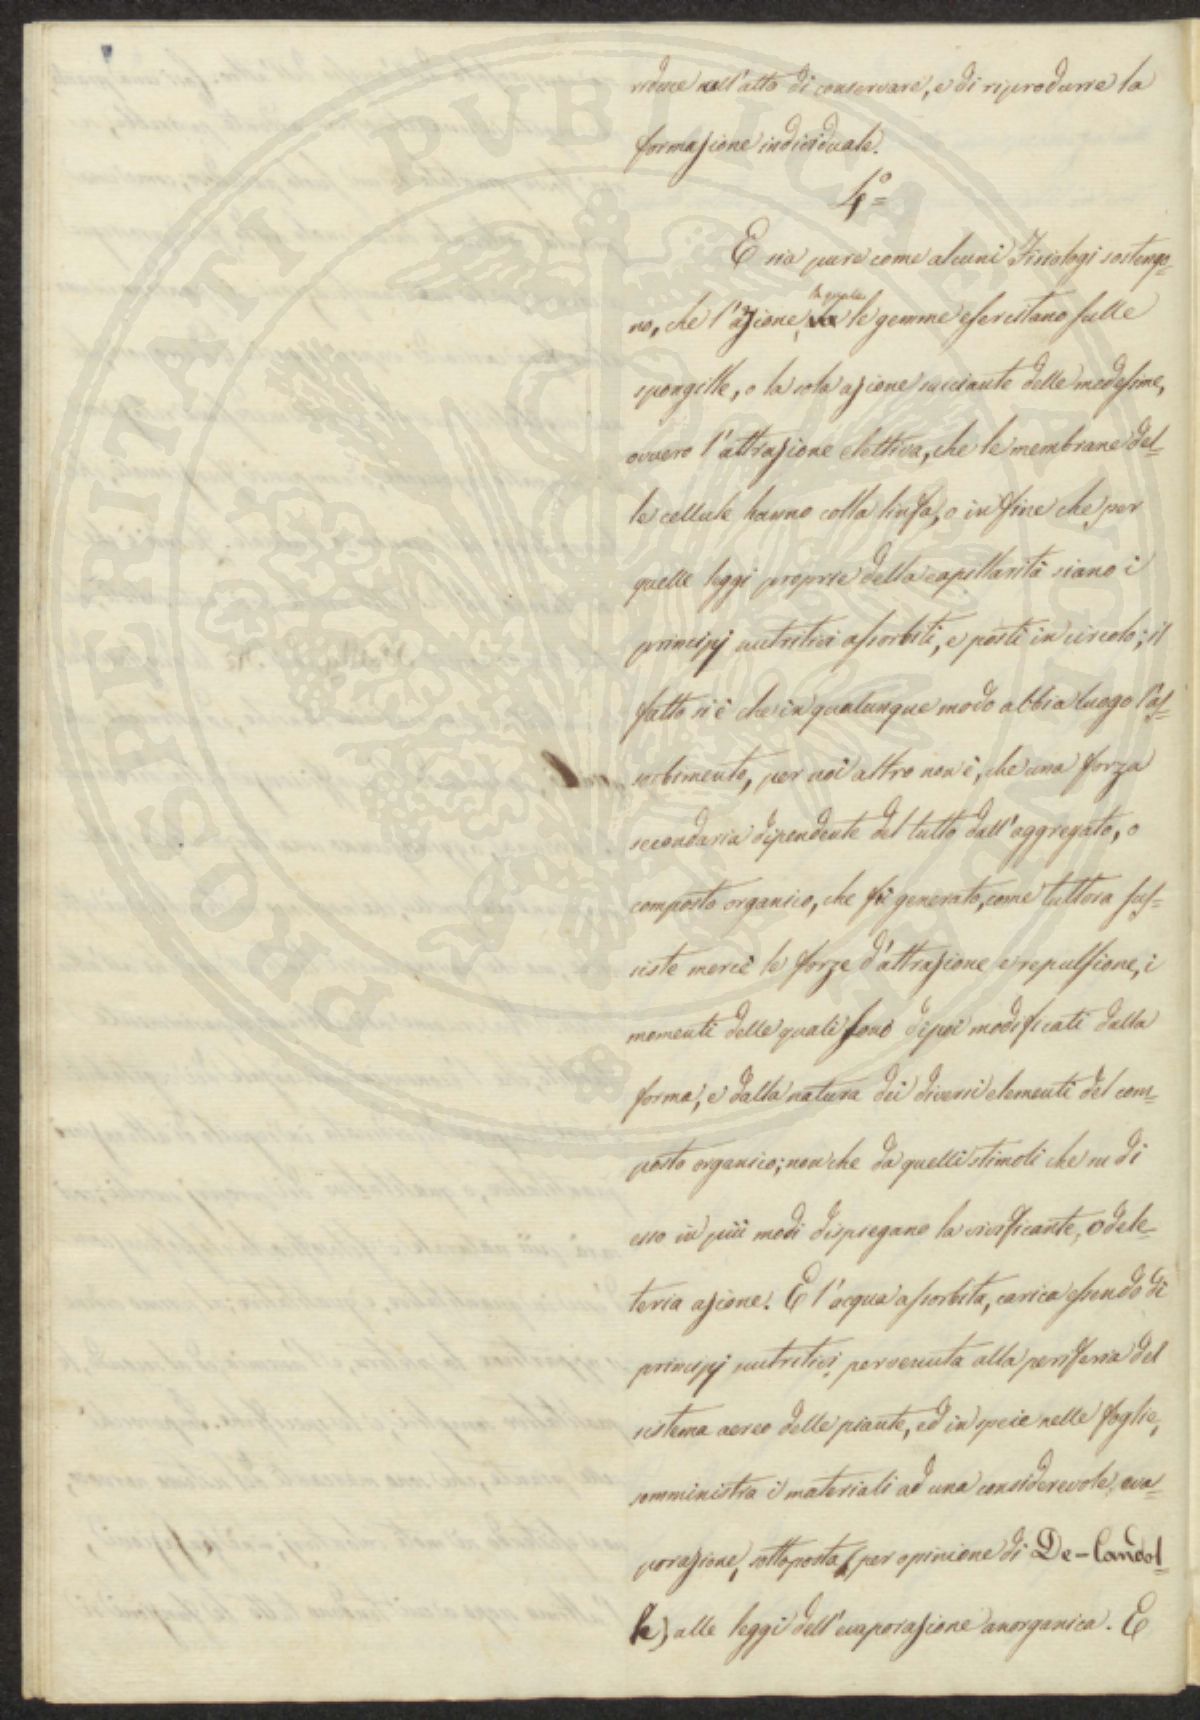 riduce nell'atto di conservare, e di riprodurre la
formazione individuale.
4°=
E sia pure come alcuni Fisiologi sostengo=
no, che l'azione, la quale le gemme esercitano sulle
spongille, o la sola azione succiante delle medesime,
ovvero l'attrazione elettiva, che le membrane del=
le cellule hanno colla linfa, o in fine che per
quelle leggi proprie della capillarità siano i
principj nutritivi assorbiti, e posti in circolo; il
fatto si è che in qualunque modo abbia luogo l'as=
sorbimento, per noi altro non è, che una forza
secondaria dipendente del tutto dall'aggregato, o
composto organico, che fù generato, come tuttora sus=
siste mercè le forze d'attrazione e repulsione, i
momenti delle quali sono dipoi modificati dalla
forma, e dalla natura dei diversi elementi del com=
posto organico; non che da quelli stimoli che su di
esso in più modi dispiegano la vivificante, o dele=
teria azione. E l'acqua assorbita, carica essendo di
principj nutritivi pervenuta alla periferia del
sistema aereo delle piante, ed in specie nelle foglie,
somministra i materiali ad una considerevole eva=
porazione, sottoposta (per opinione di De-Candol=
le) alle leggi dell'evaporazione anorganica. E
PROSPERITATI PUBLICAE AUGENDAE